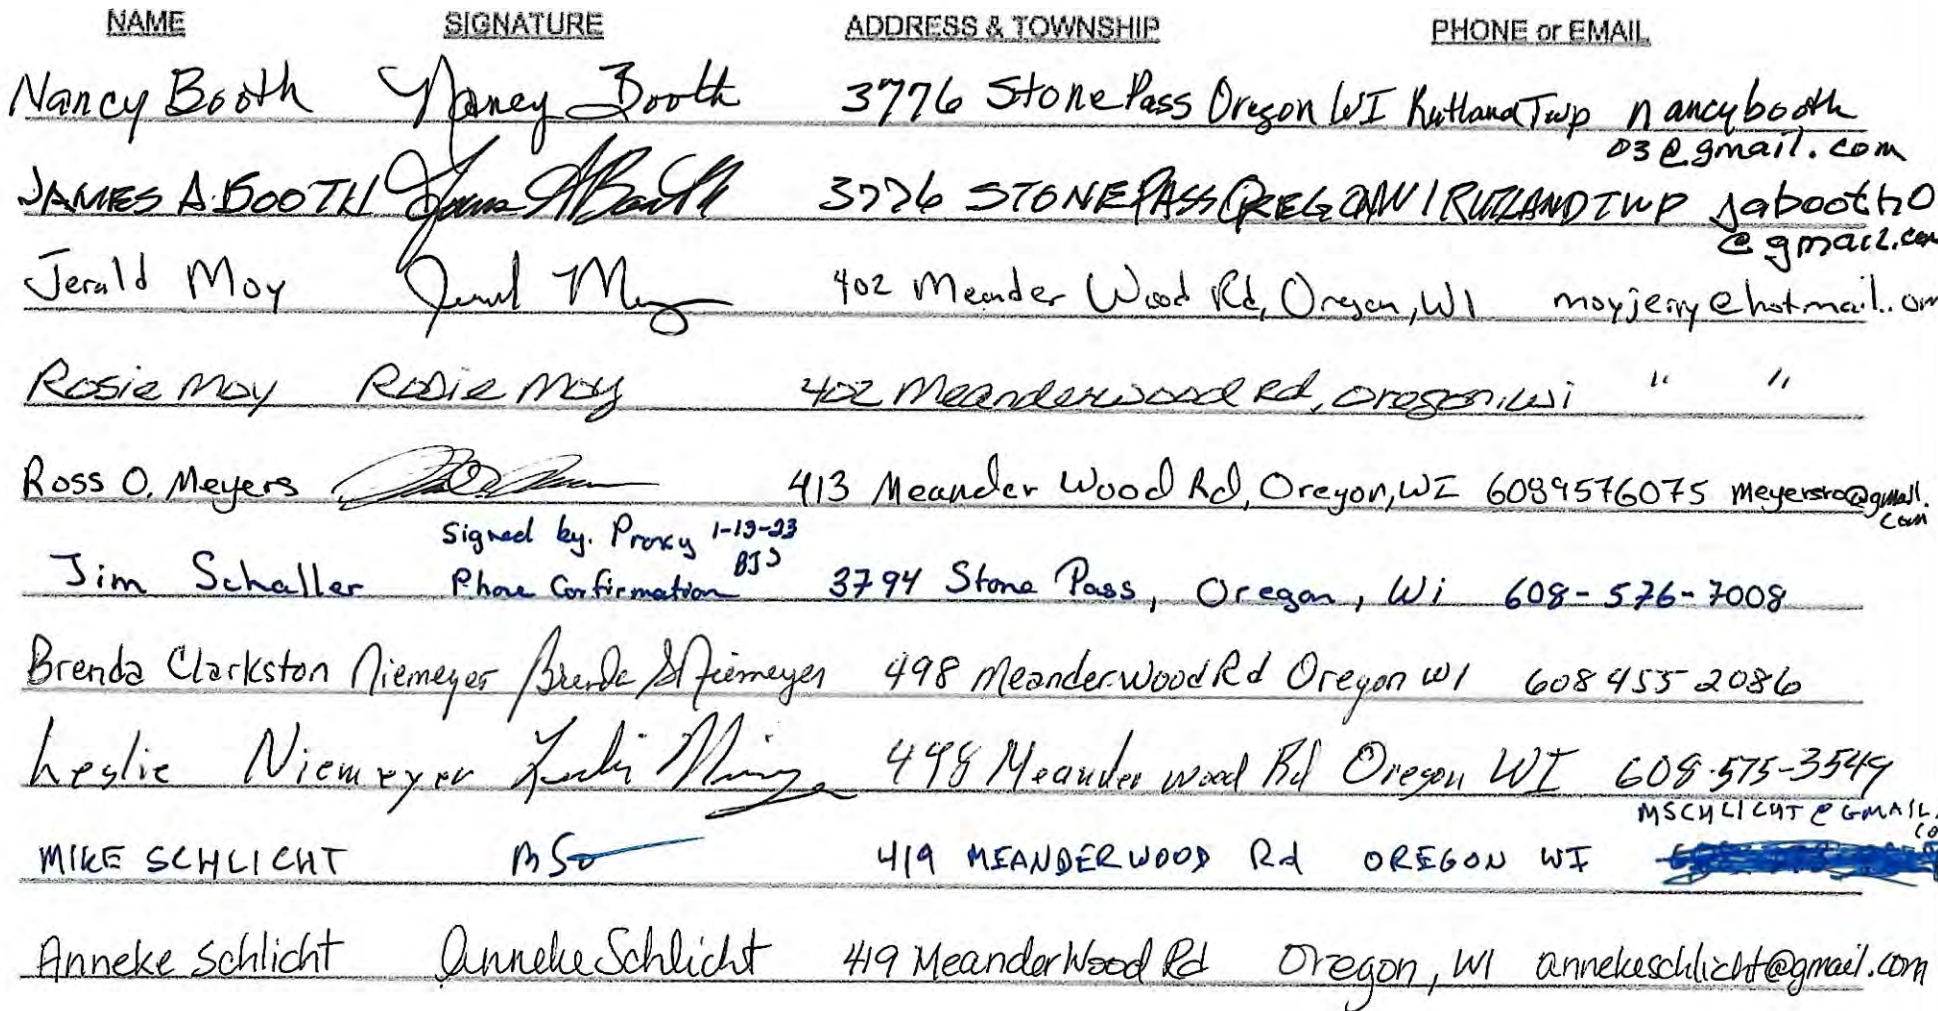 NAME SIGNATURE ADDRESS & TOWNSHIP PHONE or EMAIL
Nancy Booth Nancy Booth 3776 Stone Pass Oregon WI Rutland Twp nancybooth
03@gmail.com
JAMES A. BOOTH James A Booth 3776 STONE PASS OREGON WI RUTLAND TWP jabooth0
@gmail.com
Jerald Moy 402 Meander Wood Rd, Oregon, WI moyjerry@hotmail.com
Rosie Moy Rosie Moy 402 Meanderwood Rd, Oregon, Wi " "
Ross O. Meyers 413 Meander Wood Rd, Oregon, WI 6089576075 meyersro@gmail.
com
Signed by. Proxy 1-13-23
BJS
Jim Schaller Phone Confirmation 3794 Stone Pass, Oregon, Wi 608-576-7008
Brenda Clarkston Niemeyer Brenda S Niemeyer 498 Meanderwood Rd Oregon WI 608 455 2086
Leslie Niemeyer 498 Meander wood Rd Oregon WI 608-575-3549
MSCHLICHT@GMAIL.
MIKE SCHLICHT 419 MEANDERWOOD Rd OREGON WI
Anneke Schlicht Anneke Schlicht 419 MeanderWood Rd Oregon, WI annekeschlicht@gmail.com